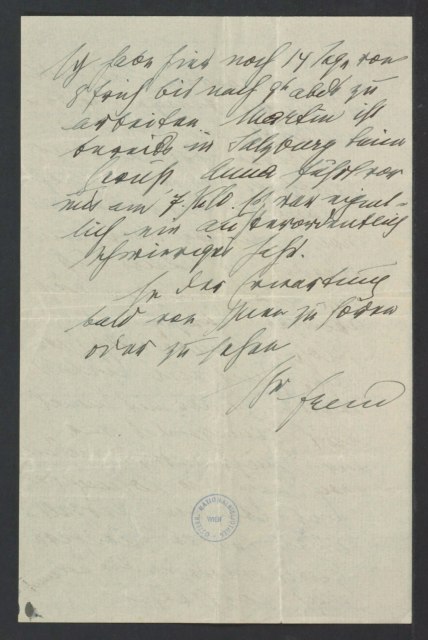 Ich habe hier noch 14 Tage von
8h früh bis nach 9h abds zu
arbeiten. Martin ist
bereits in Salzburg beim
Anna fährt vor
mir am 7. Juli. Es war eigent-
lich ein außerordentlich
schwieriges Jahr.
In der Erwartung
bald von Ihnen zu hören
oder zu sehen
Ihr
Freud
NATIONALBIBLIOTHEK
WIEN